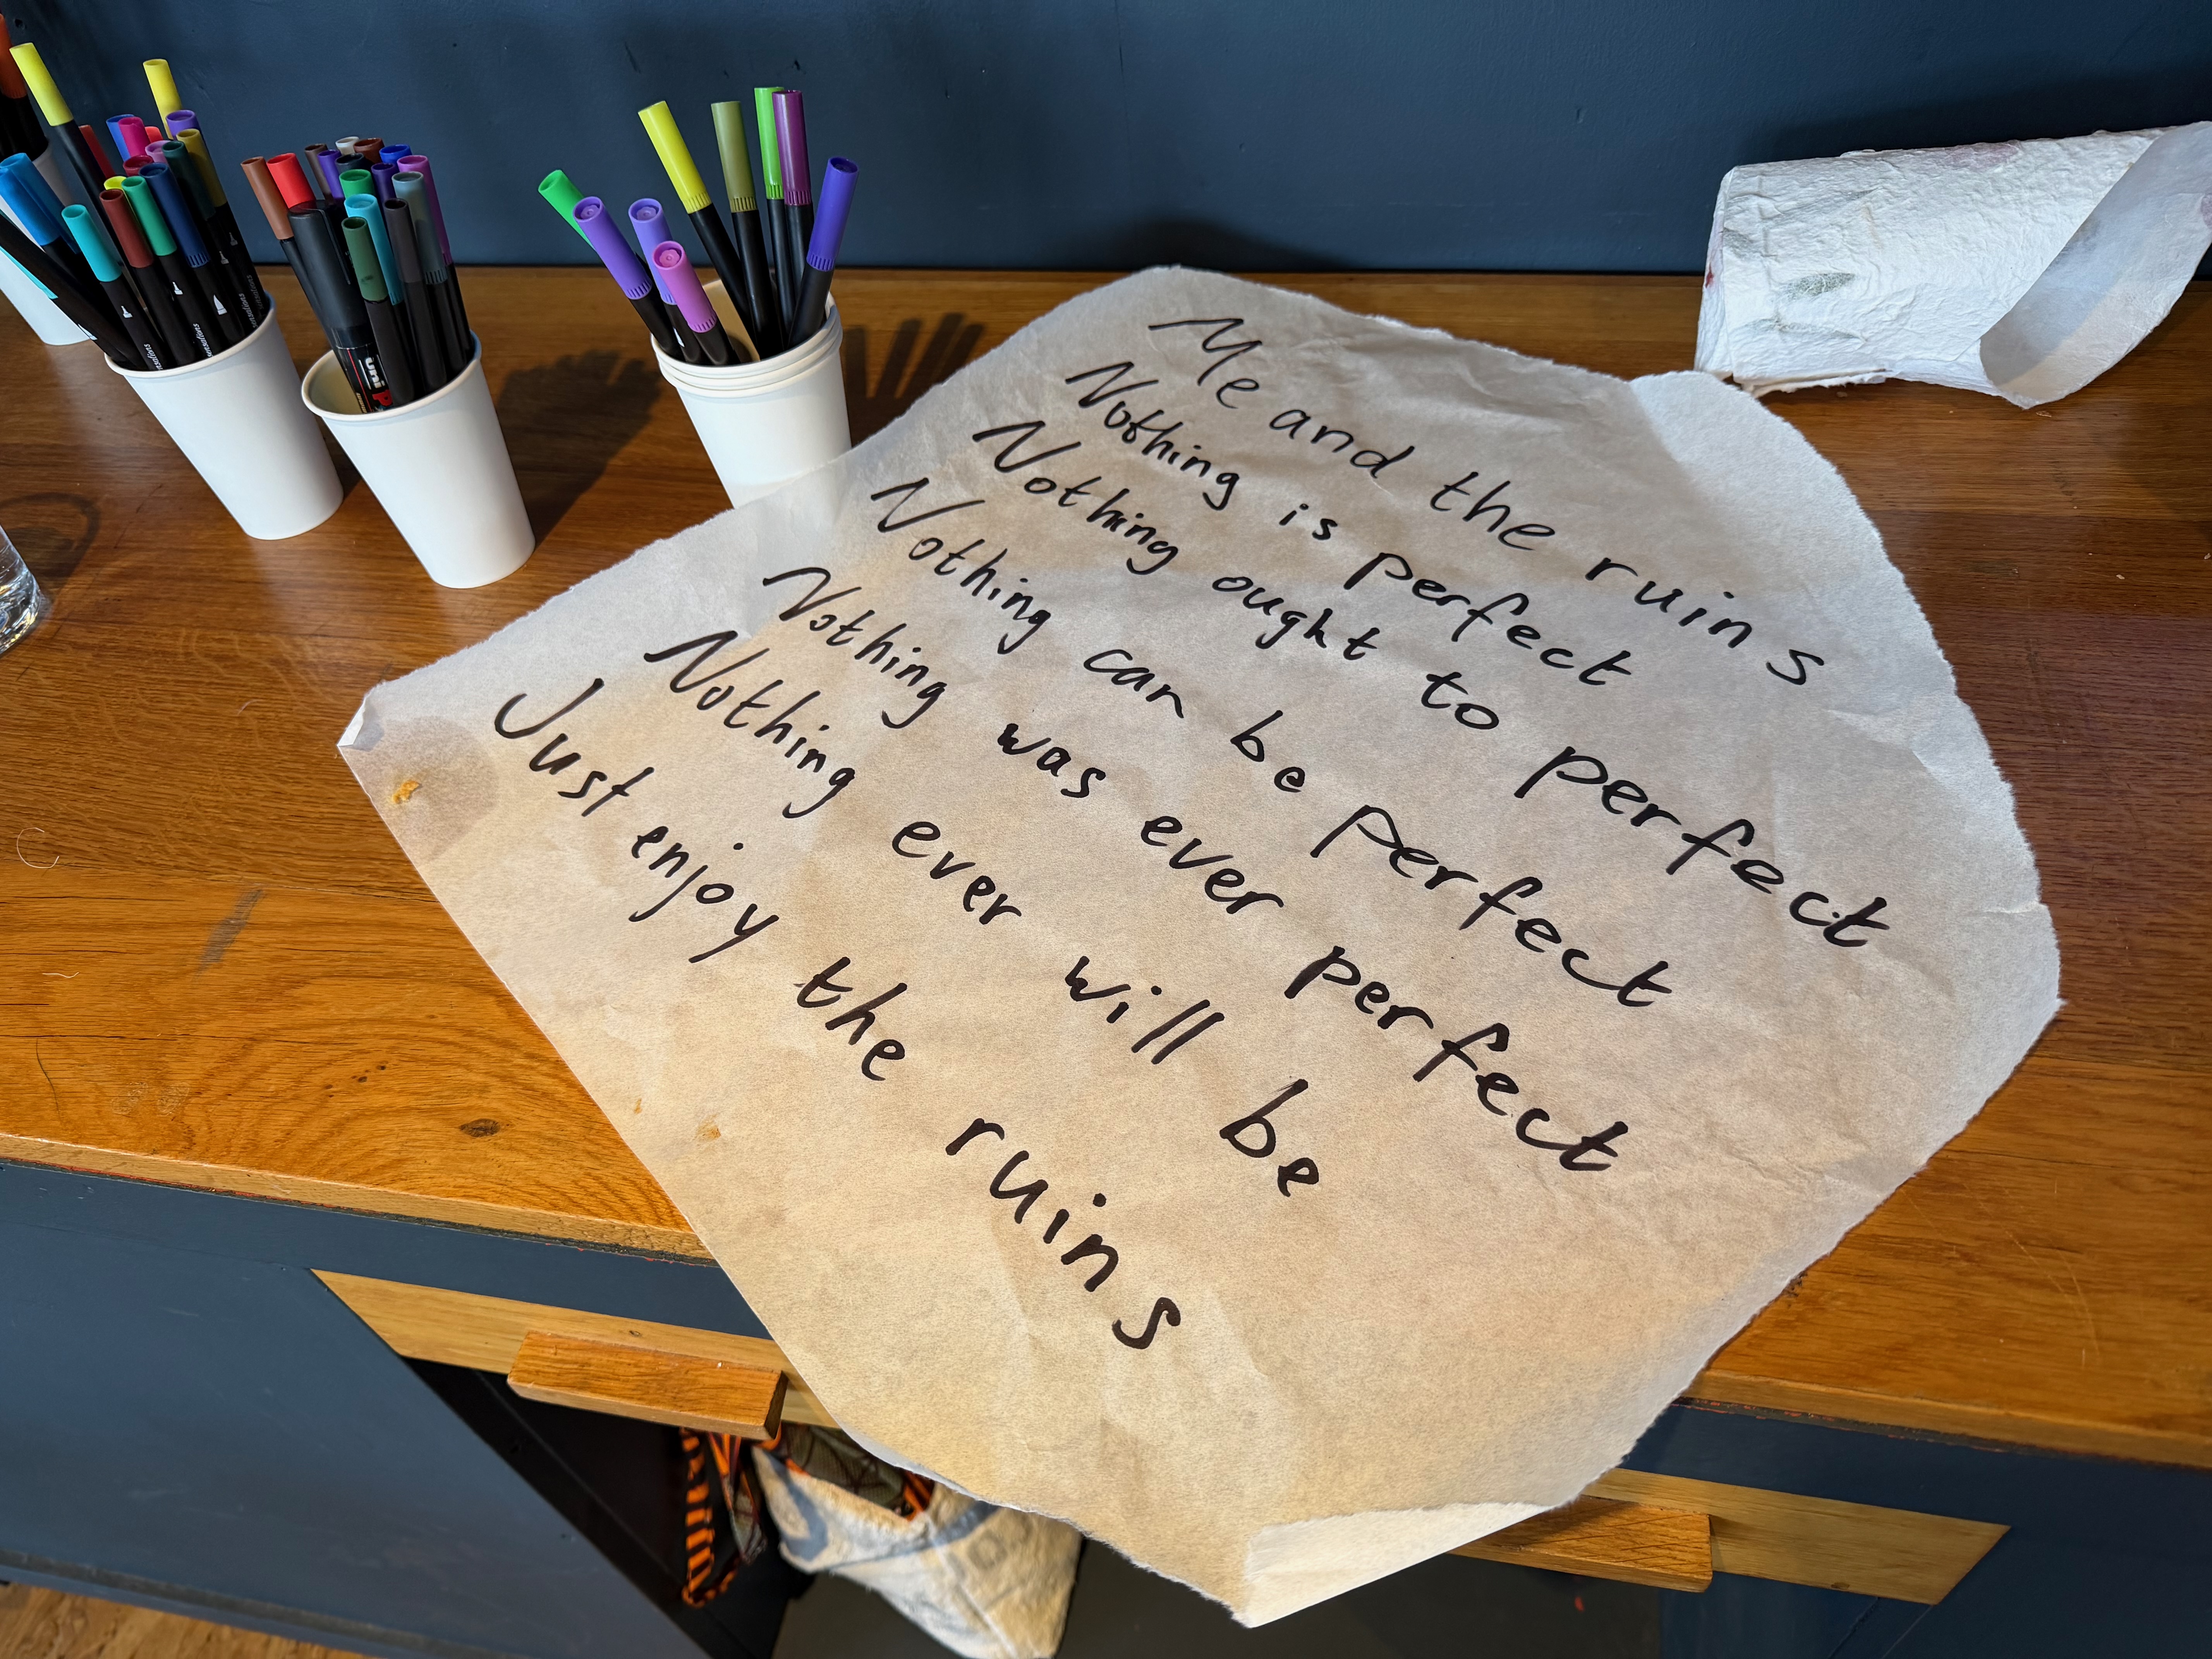 Me and the ruins
Nothing is perfect
Nothing ought to perfect
Nothing can be perfect
Nothing was ever perfect
Nothing ever will be
Just enjoy the ruins
uni